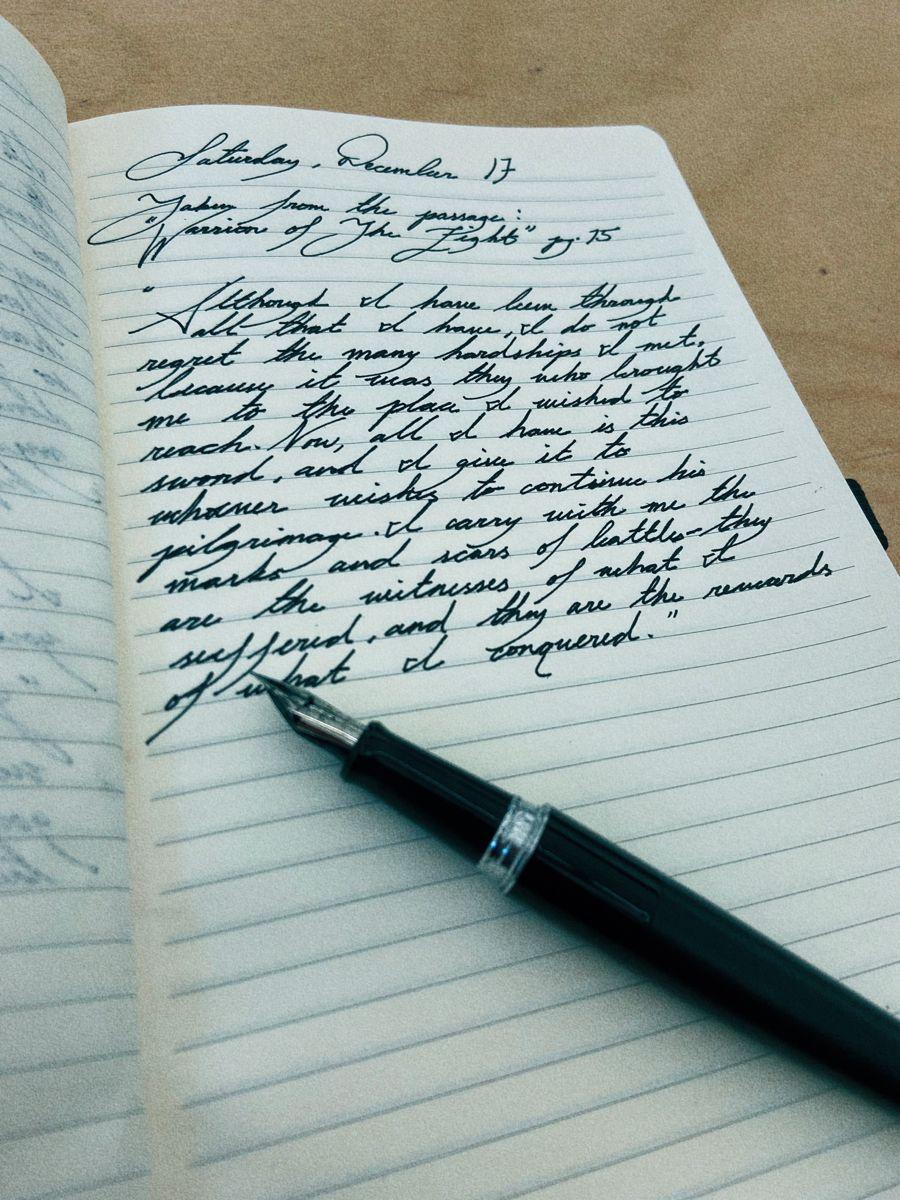 Saturday, December 17
Taken from the passage:
"Warrior of The Light" pg. 75
"Although I have been through
all that I have, I do not
regret the many hardships I met,
because it was they who brought
me to the place I wished to
reach. Now, all I have is this
sword, and I give it to
whoever wishes to continue his
pilgrimage. I carry with me the
marks and scars of battles – they
are the witnesses of what I
suffered, and they are the rewards
of what I conquered."